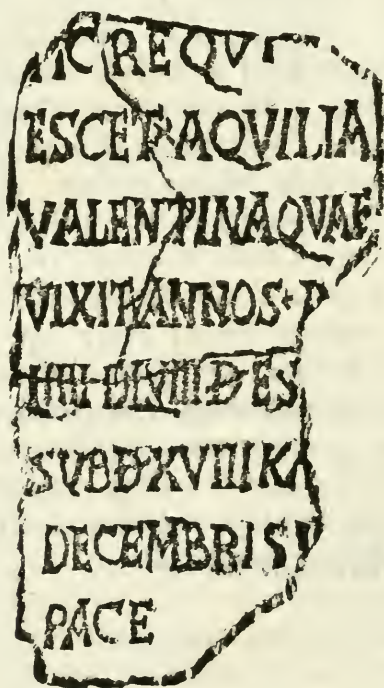 HIC REQVI
ESCET AQVILIA
VALENTINA QVAE
VIXIT ANNOS P
IIII DES
SVB D XVIII KA
DECEMBRIS
PACE